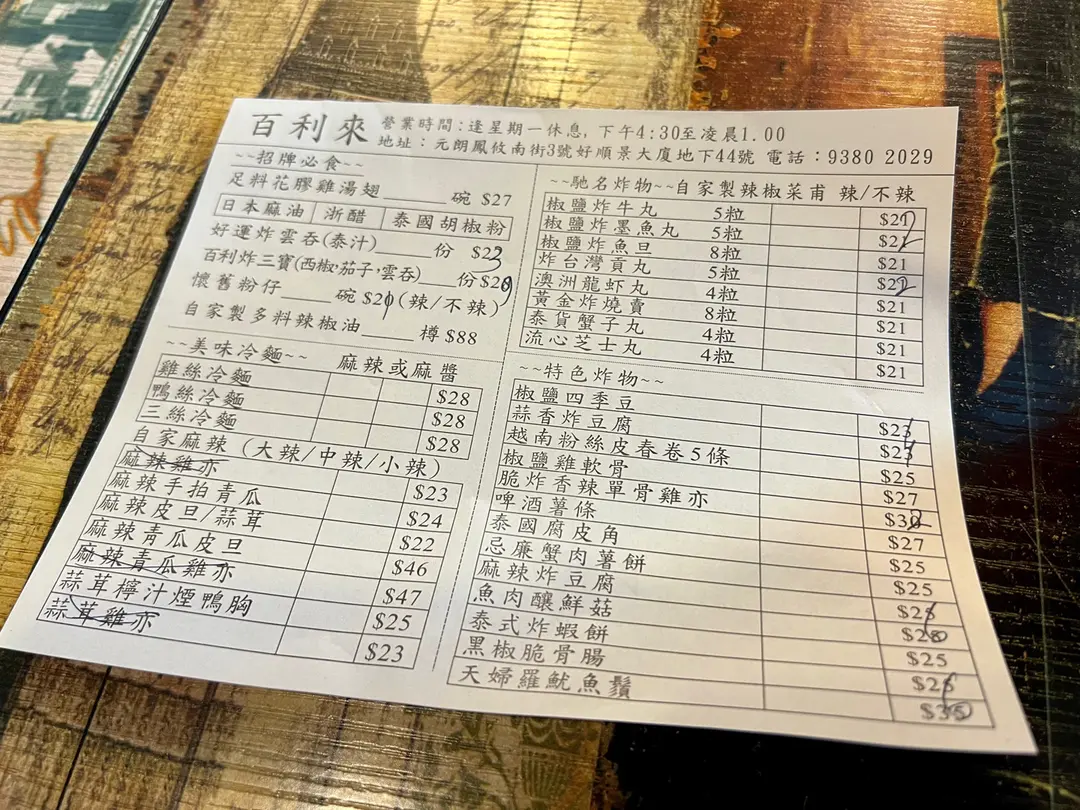 百利來 營業時間:逢星期一休息, 下午4:30至凌晨1.00
地址：元朗鳳攸南街3號好順景大廈地下44號 電話：9380 2029
~~招牌必食~~
足料花膠雞湯翅 碗 $27
日本麻油 浙醋 泰國胡椒粉
好運炸雲吞(泰汁) 份 $23
百利炸三寶(西椒,茄子,雲吞) 份$2
懷舊粉仔 碗 $2 (辣/不辣)
自家製多料辣椒油 樽 $88
~~美味冷麵~~ 麻辣或麻醬
雞絲冷麵 $28
鴨絲冷麵 $28
三絲冷麵 $28
自家麻辣 (大辣/中辣/小辣)
麻辣雞亦 $23
麻辣手拍青瓜 $24
麻辣皮旦/蒜茸 $22
麻辣青瓜皮旦 $46
麻辣青瓜雞亦 $47
蒜茸檸汁煙鴨胸 $25
蒜茸雞亦 $23
~~馳名炸物~~自家製辣椒菜甫 辣/不辣
椒鹽炸牛丸 5粒 $2
椒鹽炸墨魚丸 5粒 $22
椒鹽炸魚旦 8粒 $21
炸台灣貢丸 5粒 $22
澳洲龍虾丸 4粒 $21
黃金炸燒賣 8粒 $21
泰貨蟹子丸 4粒 $21
流心芝士丸 4粒 $21
~~特色炸物~~
椒鹽四季豆 $23
蒜香炸豆腐 $23
越南粉絲皮春卷5條 $25
椒鹽雞軟骨 $27
脆炸香辣單骨雞亦 $32
啤酒薯條 $27
泰國腐皮角 $25
忌廉蟹肉薯餅 $25
麻辣炸豆腐 $2
魚肉釀鮮菇 $2
泰式炸蝦餅 $25
黑椒脆骨腸 $2
天婦羅魷魚鬚 $3